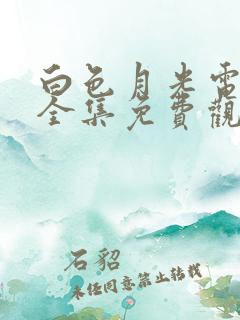 白色月光電
全集免費觀
石貂
未经同意禁止转载